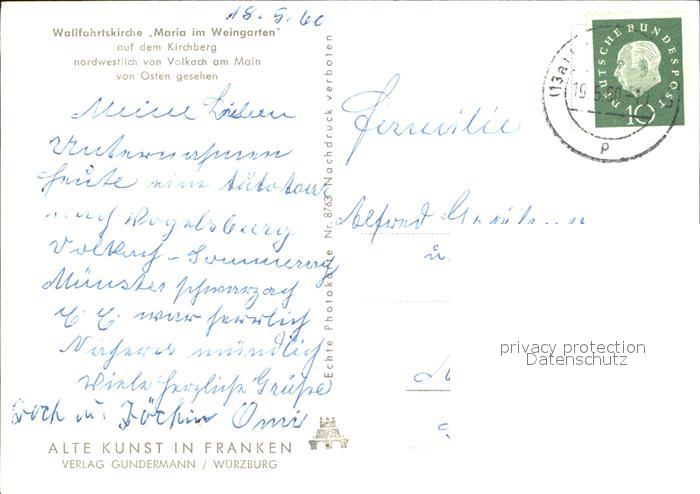 18. 5. 60
Wallfahrtskirche „Maria im Weingarten"
auf dem Kirchberg
nordwestlich von Volkach am Main
von Osten gesehen
Meine Lieben
Unternahmen
heute eine Autotour
nach Vogelsburg
Volkach - Sommerach
Münsterschwarzach
war herrlich
Näheres mündlich
Viele herzliche Grüße
u. Omi
ALTE KUNST IN FRANKEN
VERLAG GUNDERMANN / WÜRZBURG
Echte Photokarte Nr. 8763 Nachdruck verboten
Familie
Alfred
u.
DEUTSCHE BUNDESPOST
10
(13a)
19.5.60
p
privacy protection
Datenschutz